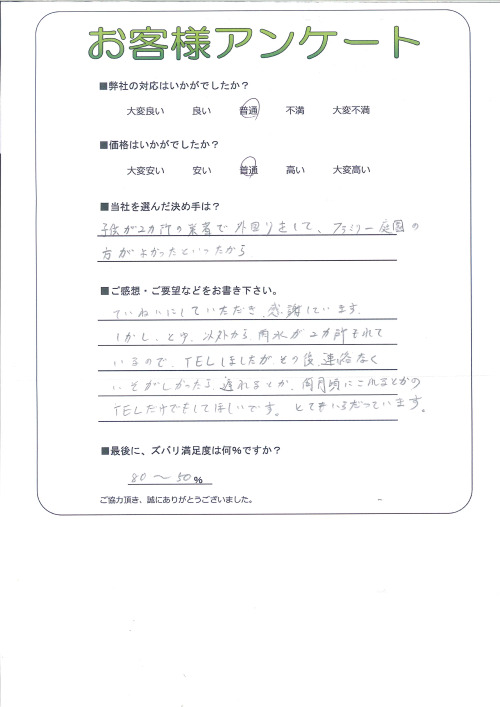 お客様アンケート
■弊社の対応はいかがでしたか？
大変良い 良い 普通 不満 大変不満
■価格はいかがでしたか？
大変安い 安い 普通 高い 大変高い
■当社を選んだ決め手は？
子供が2カ所の業者で外回りをして、ファミリー庭園の
方がよかったといったから
■ご感想・ご要望などをお書き下さい。
ていねいにしていただき、感謝しています。
しかし、とゆ、以外から雨水が2カ所もれて
いるので、TELしましたがその後、連絡なく
いそがしかったら、遅れるとか、何月頃にこれるとかの
TELだけでもしてほしいです。とてもいらだっています。
■最後に、ズバリ満足度は何%ですか？
80〜50%
ご協力頂き、誠にありがとうございました。